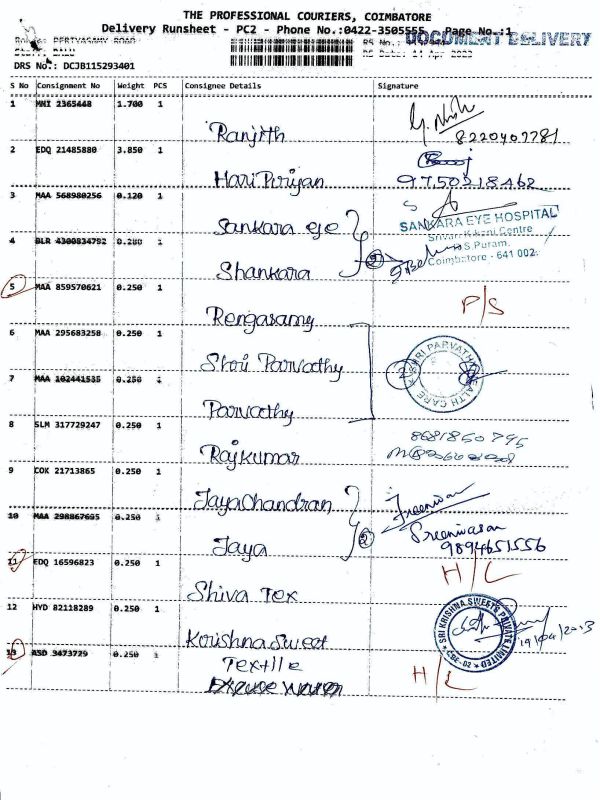 THE PROFESSIONAL COURIERS, COIMBATORE
Delivery Runsheet - PC2 - Phone No.:0422-3505555 Page No.:1
DOCUMENT DELIVERY
DRS No.: DCJB115293401
S No Consignment No Weight PCS Consignee Details Signature
1 MNI 2365448 1.700 1
Ranjith 8220407781
2 EDQ 21485880 3.850 1
Hari Piriyan 9750218462
3 MAA 568980256 0.120 1
Sankara eye SANKARA EYE HOSPITAL
4 BLR 4300834792 0.280 1
S.Puram.
Shankara 2 Coimbatore - 641 002.
5 MAA 859570621 0.250 1
Rengasamy P/S
6 MAA 295683258 0.250 1
Shri Parvathy 2 SHRI PARVATHI HEALTH CARE
7 MAA 102441535 0.250 1
Parvathy
8 SLM 317729247 0.250 1
Rajkumar 8681850795
9 COX 21713865 0.250 1
JayaChandran
10 MAA 298867695 0.250 1
Jaya 2 Sreeniwasan
9894651556
11 EDQ 16596823 0.250 1
Shiva Tex H/L
12 HYD 82118289 0.250 1
Krishna Sweet SRI KRISHNA SWEETS PRIVATE LIMITED CBE-02
13 ASD 3473729 0.250 1
Textile H/L